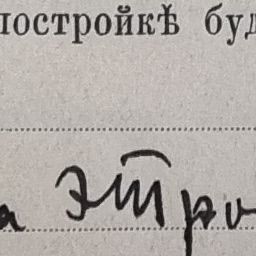 постройкѣ буд
а этро